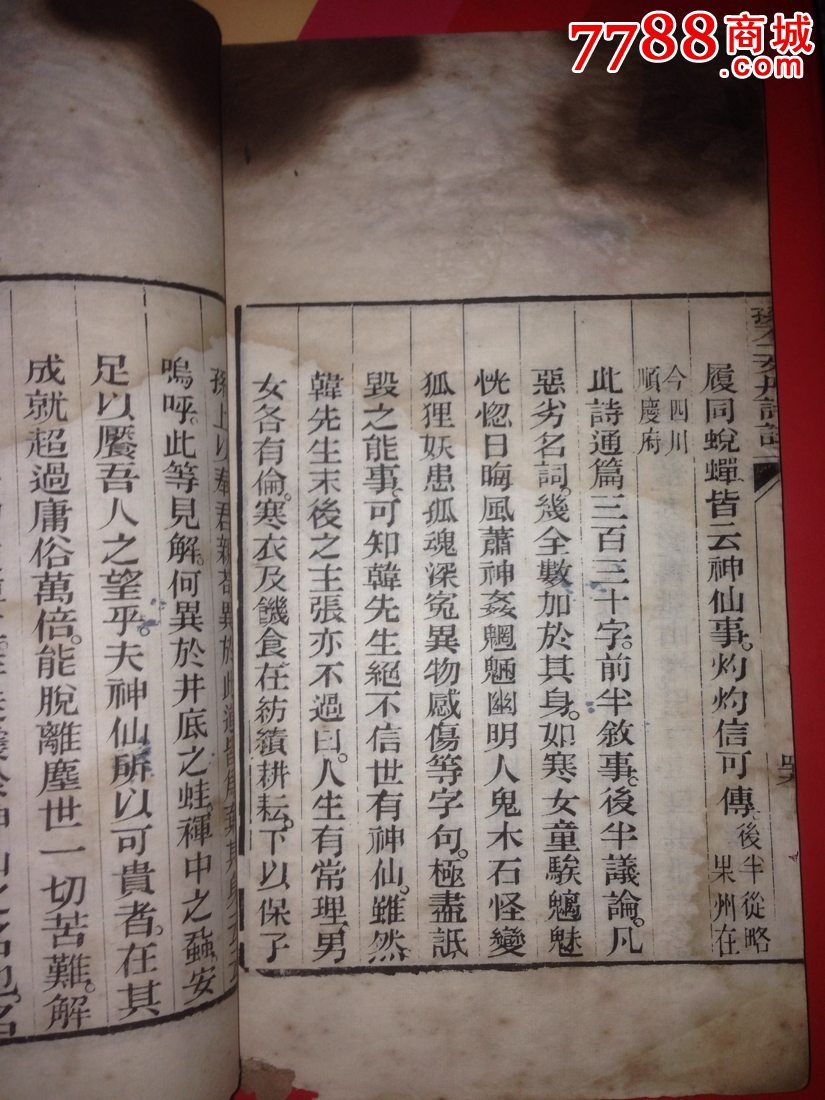 7788商城
.com
履同蛻蟬皆云神仙事。灼灼信可傳。後半從略 果州在
今四川順慶府
此詩通篇三百三十字。前半敘事。後半議論。凡
惡劣名詞。幾全數加於其身。如寒女童騃魑魅
恍惚日晦風蕭神姦魍魎幽明人鬼木石怪變
狐狸妖患孤魂深冤異物感傷等字句。極盡詆
毀之能事。可知韓先生絕不信世有神仙。雖然
韓先生末後之主張亦不過曰。人生有常理。男
女各有倫。寒衣及饑食在紡績耕耘。下以保子
孫上以奉君親苟異於此道皆爲棄其身云云
嗚呼。此等見解。何異於井底之蛙。褌中之蝨。安
足以饜吾人之望乎。夫神仙所以可貴者。在其
成就超過庸俗萬倍。能脫離塵世一切苦難。解